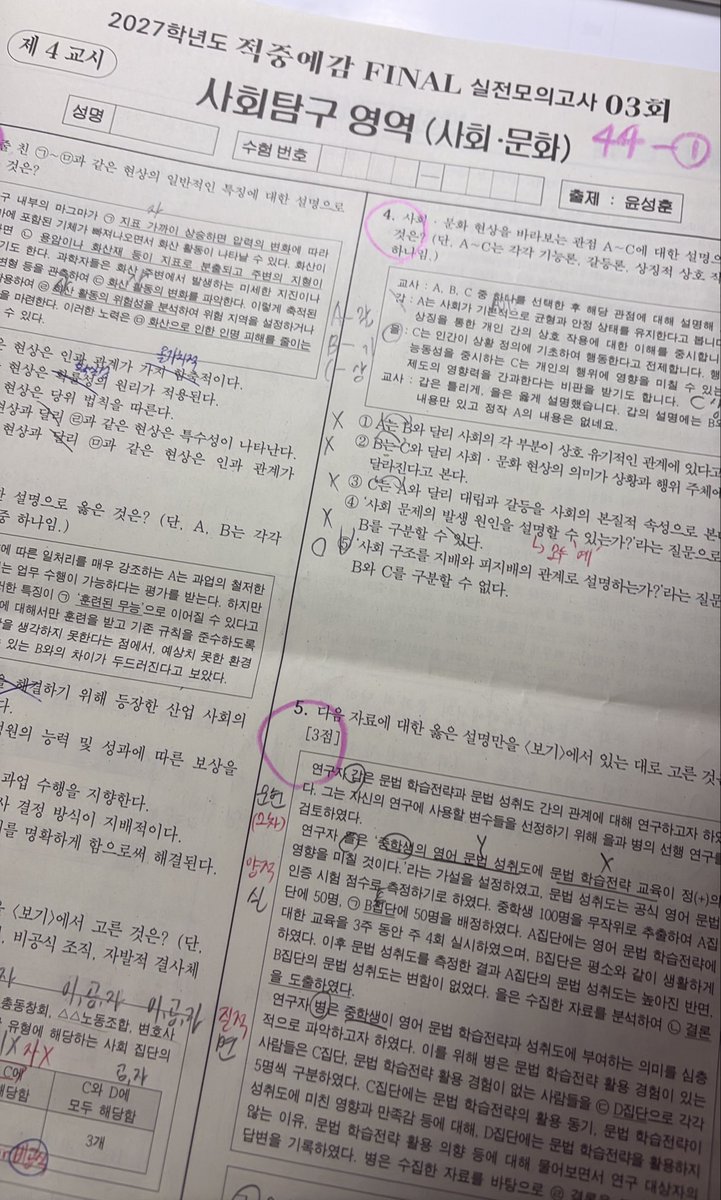 2027학년도 적중예감 FINAL 실전모의고사 03회
제 4 교시
사회탐구 영역 (사회·문화)
44 - ①
성명
수험 번호
출제 : 윤성훈
친 ㉠~㉤과 같은 현상의 일반적인 특징에 대한 설명으로
것은?
구 내부의 마그마가 ㉠ 지표 가까이 상승하면 압력의 변화에 따라
마에 포함된 기체가 빠져나오면서 화산 활동이 나타날 수 있다. 화산이
하면 ㉡ 용암이나 화산재 등이 지표로 분출되고 주변의 지형이
기도 한다. 과학자들은 화산 주변에서 발생하는 미세한 지진이나
변형 등을 관측하여 ㉢ 화산 활동의 변화를 파악한다. 이렇게 축적된
활용하여 ㉣ 화산 활동의 위험성을 분석하여 위험 지역을 설정하거나
을 마련한다. 이러한 노력은 ㉤ 화산으로 인한 인명 피해를 줄이는
수 있다.
은 현상은 인과 관계가 가치 함축적이다.
현상은 확률성의 원리가 적용된다.
현상은 당위 법칙을 따른다.
현상과 달리 ㉣과 같은 현상은 특수성이 나타난다.
현상과 달리 ㉤과 같은 현상은 인과 관계가
한 설명으로 옳은 것은? (단, A, B는 각각
중 하나임.)
에 따른 일처리를 매우 강조하는 A는 과업의 철저한
는 업무 수행이 가능하다는 평가를 받는다. 하지만
러한 특징이 ㉠ '훈련된 무능'으로 이어질 수 있다고
에 대해서만 훈련을 받고 기존 규칙을 준수하도록
을 생각하지 못한다는 점에서, 예상치 못한 환경
수 있는 B와의 차이가 두드러진다고 보았다.
을 해결하기 위해 등장한 산업 사회의
다.
성원의 능력 및 성과에 따른 보상을
과업 수행을 지향한다.
사 결정 방식이 지배적이다.
를 명확하게 함으로써 해결된다.
을 <보기>에서 고른 것은? (단,
비공식 조직, 자발적 결사체
이,공,자 이,공,자
총동창회, △△노동조합, 변호사
유형에 해당하는 사회 집단의
X 자X
공,자
C에
해당함
C와 D에
모두 해당함
3개
비공식
4. 사회·문화 현상을 바라보는 관점 A~C에 대한 설명으
것은? (단, A~C는 각각 기능론, 갈등론, 상징적 상호 작
하나임.)
교사 : A, B, C 중 하나를 선택한 후 해당 관점에 대해 설명해
갑 : A는 사회가 기본적으로 균형과 안정 상태를 유지한다고 봅니다
상징을 통한 개인 간의 상호 작용에 대한 이해를 중시합니
을 : C는 인간이 상황 정의에 기초하여 행동한다고 전제합니다. 행
능동성을 중시하는 C는 개인의 행위에 영향을 미칠 수 있는
제도의 영향력을 간과한다는 비판을 받기도 합니다.
교사 : 갑은 틀리게, 을은 옳게 설명했습니다. 갑의 설명에는 B의
내용만 있고 정작 A의 내용은 없네요.
A-갈
B-기
C-상
X ① A는 B와 달리 사회의 각 부분이 상호 유기적인 관계에 있다고
X ② B는 C와 달리 사회·문화 현상의 의미가 상황과 행위 주체에
달라진다고 본다.
X ③ C는 A와 달리 대립과 갈등을 사회의 본질적 속성으로 본다
X ④ '사회 문제의 발생 원인을 설명할 수 있는가?'라는 질문으로
B를 구분할 수 있다.
O ⑤ '사회 구조를 지배와 피지배의 관계로 설명하는가?'라는 질문
B와 C를 구분할 수 없다.
5. 다음 자료에 대한 옳은 설명만을 <보기>에서 있는 대로 고른 것
[3점]
연구자 갑은 문법 학습전략과 문법 성취도 간의 관계에 대해 연구하고자 하였
다. 그는 자신의 연구에 사용할 변수들을 선정하기 위해 을과 병의 선행 연구를
검토하였다.
연구자 을은 '중학생의 영어 문법 성취도에 문법 학습전략 교육이 정(+)의
영향을 미칠 것이다.'라는 가설을 설정하였고, 문법 성취도는 공식 영어 문법
인증 시험 점수로 측정하기로 하였다. 중학생 100명을 무작위로 추출하여 A집
단에 50명, ㉠ B집단에 50명을 배정하였다. A집단에는 영어 문법 학습전략에
대한 교육을 3주 동안 주 4회 실시하였으며, B집단은 평소와 같이 생활하게
하였다. 이후 문법 성취도를 측정한 결과 A집단의 문법 성취도는 높아진 반면,
B집단의 문법 성취도는 변함이 없었다. 을은 수집한 자료를 분석하여 ㉡ 결론
을 도출하였다.
연구자 병은 중학생이 영어 문법 학습전략과 성취도에 부여하는 의미를 심층
적으로 파악하고자 하였다. 이를 위해 병은 문법 학습전략 활용 경험이 있는
사람들은 C집단, 문법 학습전략 활용 경험이 없는 사람들을 ㉢ D집단으로 각각
5명씩 구분하였다. C집단에는 문법 학습전략의 활용 동기, 문법 학습전략이
성취도에 미친 영향과 만족감 등에 대해, D집단에는 문법 학습전략을 활용하지
않는 이유, 문법 학습전략 활용 의향 등에 대해 물어보면서 연구 대상자의
답변을 기록하였다. 병은 수집한 자료를 바탕으로 ㉣ 결
양적
실
질적
면